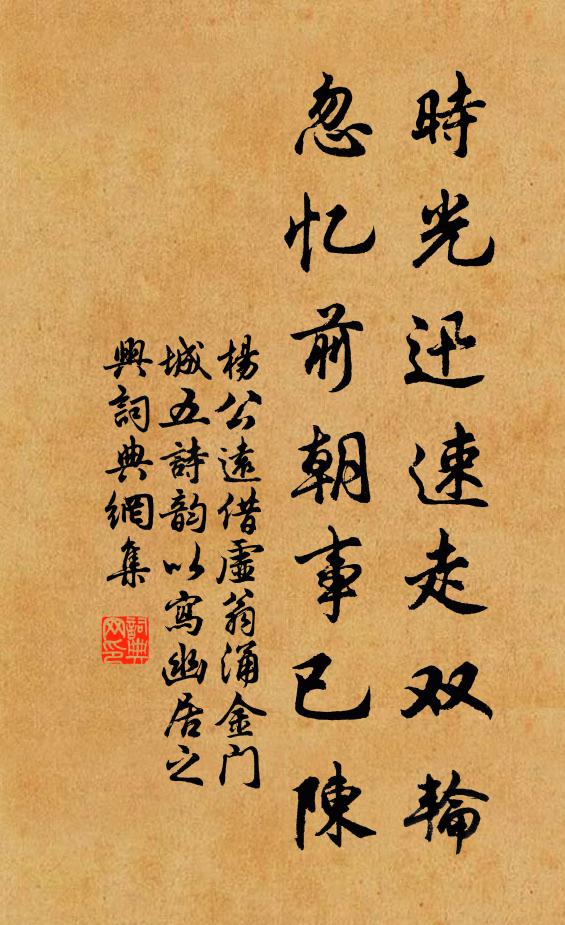 時光迅速走双輪
忽忆前朝事已陳
楊公遠借虛翁涌金门
城五詩韵以寫幽居之
興詞典網集
詞典网印